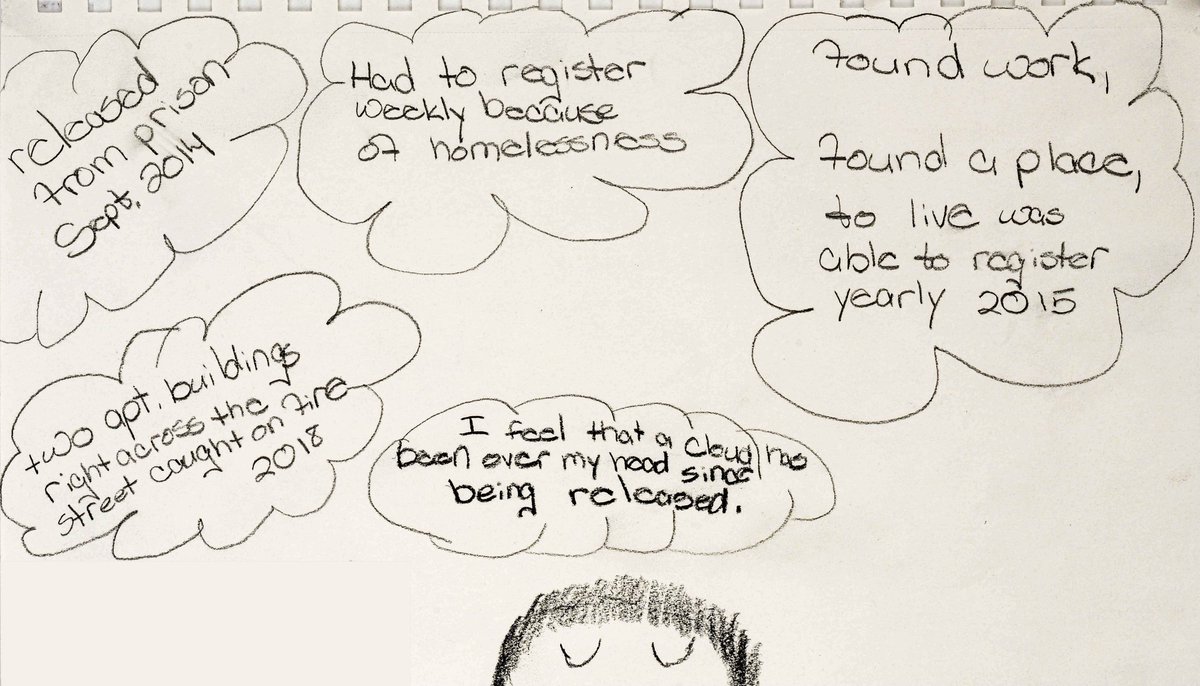 released
from prison
Sept, 2014
Had to register
weekly because
of homelessness
found work,
found a place,
to live was
able to register
yearly 2015
two apt. buildings
right across the
street caught on fire
2018
I feel that a cloud has
been over my head since
being released.